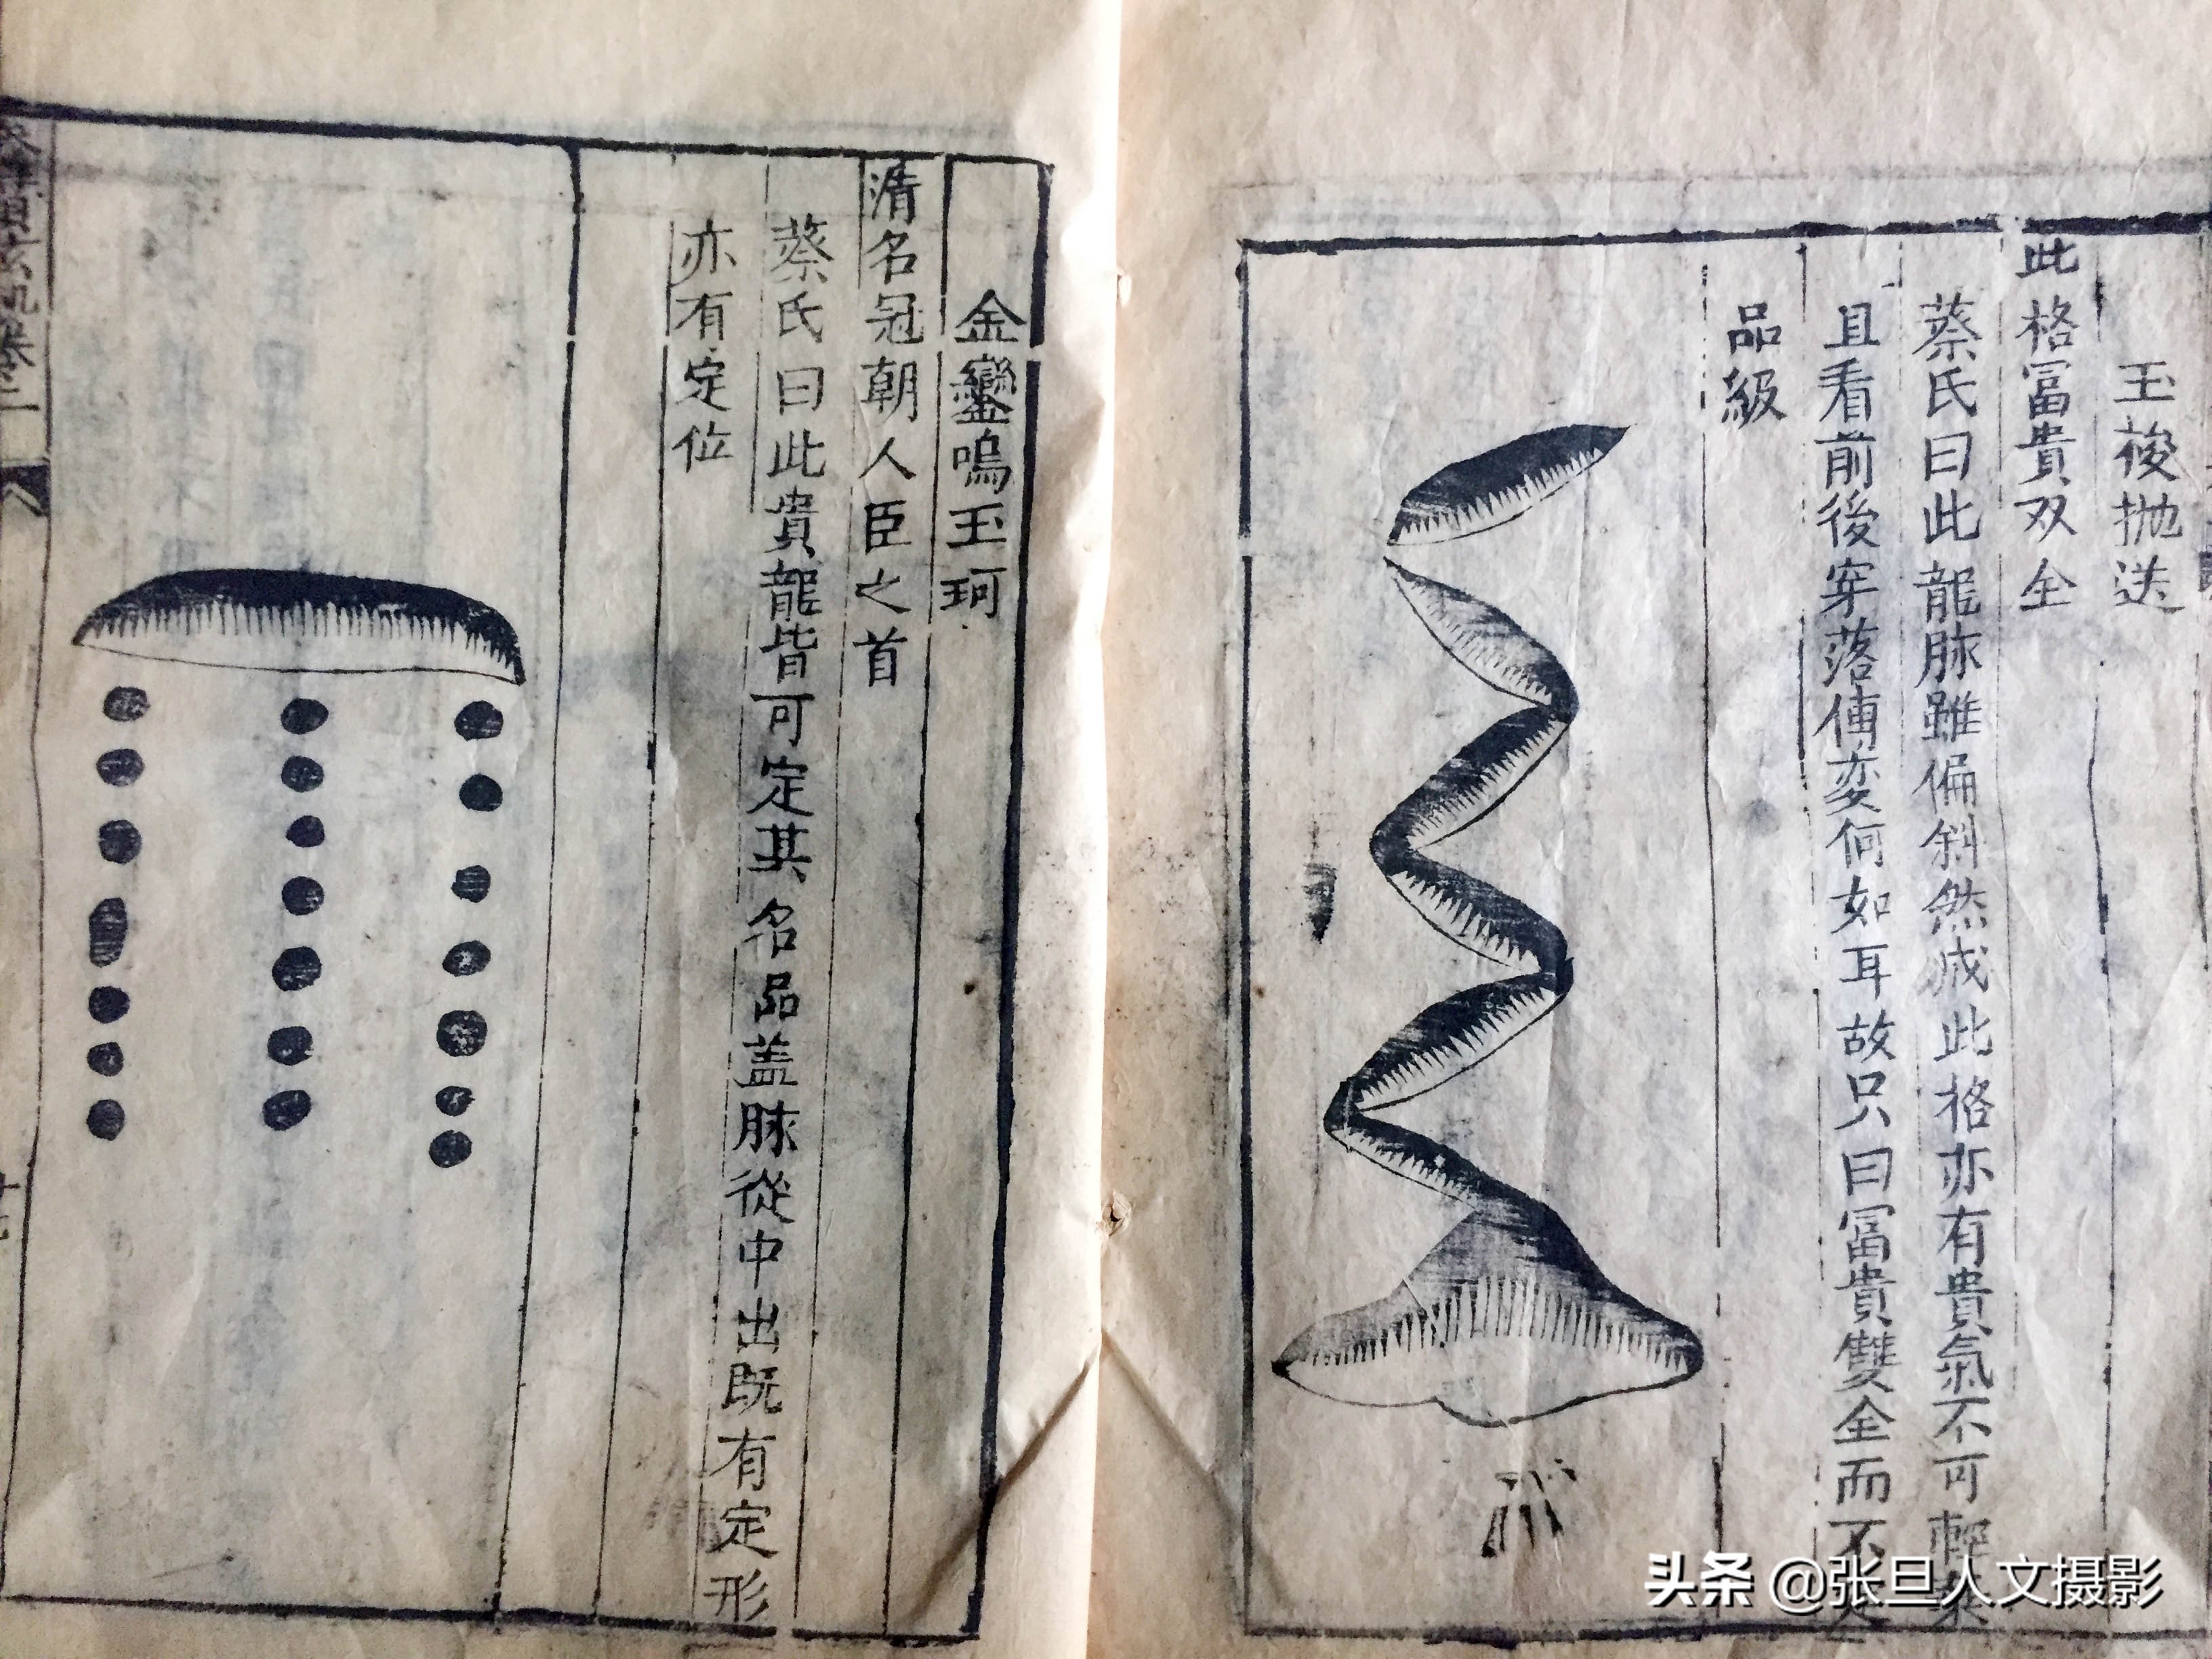 玉梭抛送
此格冨貴双全
蔡氏曰此龍脉雖偏斜然成此格亦有貴氣不可輕
且看前後穿落傳变何如耳故只曰冨貴雙全而不
品級
金鑾嗚玉珂
清名冠朝人臣之首
蔡氏曰此貴龍皆可定其名品盖脉從中出既有定形
亦有定位
头条 @张旦人文摄影